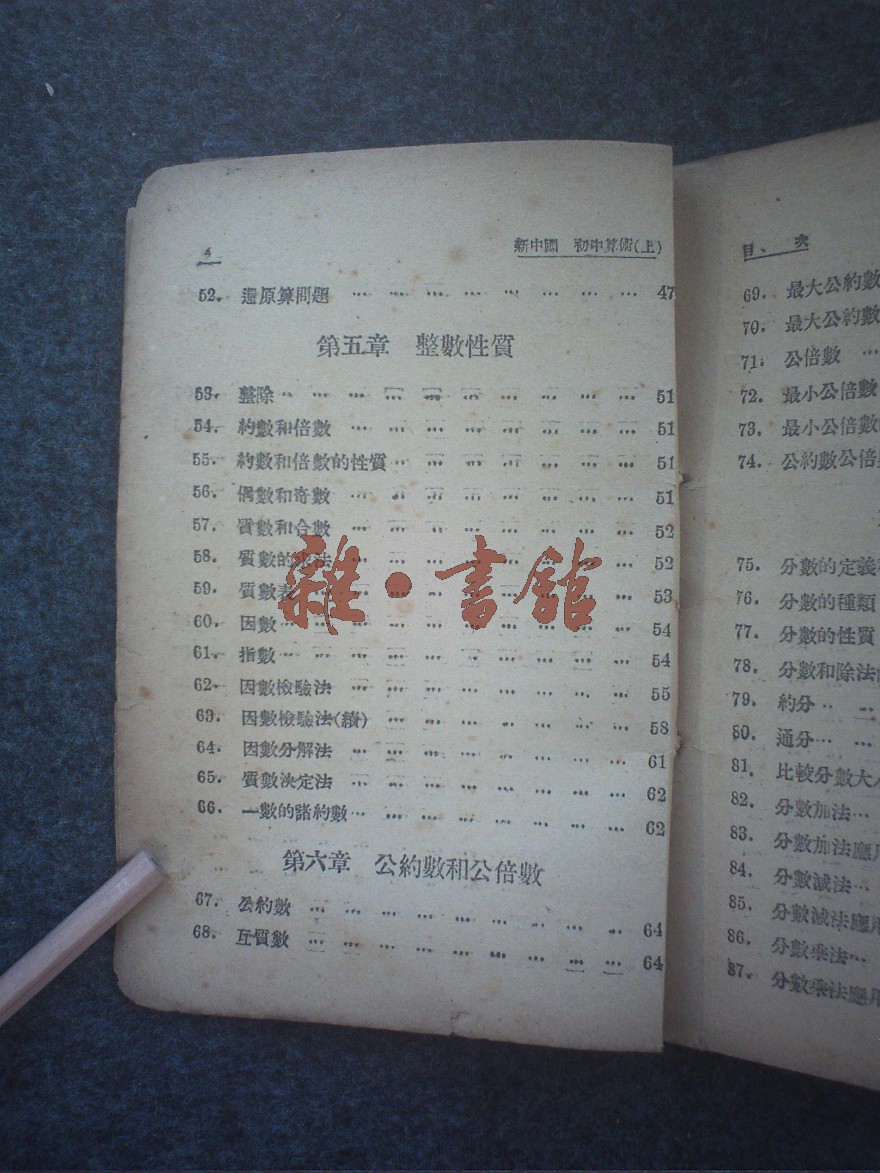 4 新中國 初中算術(上)
52. 還原算問題 … … … … … … … … 47
第五章 整數性質
53. 整除 … … … … … … … … … 51
54. 約數和倍數 … … … … … … … … 51
55. 約數和倍數的性質 … … … … … … 51
56. 偶數和奇數 … … … … … … … … 51
57. 質數和合數 … … … … … … … … 52
58. 質數的求法 … … … … … … … … 52
59. 質數表 … … … … … … … … … 53
60. 因數 … … … … … … … … … 54
61. 指數 … … … … … … … … … 54
62. 因數檢驗法 … … … … … … … … 55
63. 因數檢驗法(續) … … … … … … … 58
64. 因數分解法 … … … … … … … … 61
65. 質數決定法 … … … … … … … … 62
66. 一數的諸約數 … … … … … … … … 62
第六章 公約數和公倍數
67. 公約數 … … … … … … … … … 64
68. 互質數 … … … … … … … … … 64
雜·書館
目次
69. 最大公約數
70. 最大公約數
71. 公倍數 …
72. 最小公倍數
73. 最小公倍數
74. 公約數公倍
75. 分數的定義
76. 分數的種類
77. 分數的性質
78. 分數和除法
79. 約分 … …
80. 通分 … …
81. 比較分數大
82. 分數加法 …
83. 分數加法應用
84. 分數減法 …
85. 分數減法應用
86. 分數乘法 …
87. 分數乘法應用